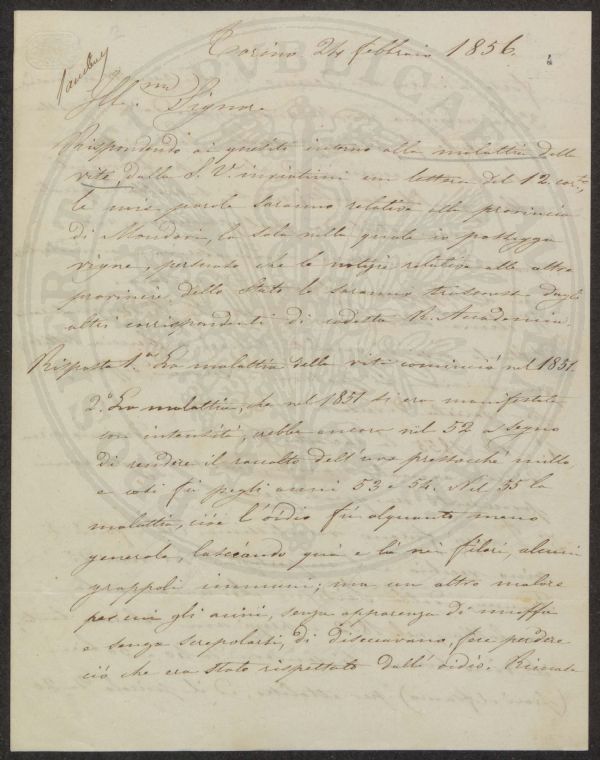 Torino 24 febbraio 1856.
Ill.mo Signore
Rispondendo ai quesiti intorno alla malattia delle
viti, dalla S. V. inviatimi con lettera del 12 corr.te,
le mie parole saranno relative alla provincia
di Mondovì, la sola nella quale io posseggo
vigne, persuaso che le notizie relative alle altre
provincie dello Stato le saranno trasmesse dagli
altri corrispondenti di codesta R. Accademia.
Risposta 1.a La malattia delle viti cominciò nel 1851.
2.o La malattia, che nel 1851 si era manifestata
con intensità, crebbe ancora nel 52 a segno
di rendere il raccolto dell'uva pressochè nullo
e così fù pegli anni 53 e 54. Nel 55 la
malattia, cioè l'oidio fù alquanto meno
generale, lasciando quà e là nei filari, alcuni
grappoli immuni; ma un altro malore
per cui gli acini, senza apparenza di muffa
e senza screpolarsi, si disseccavano, fece perdere
ciò che era stato rispettato dall'oidio. Rimase